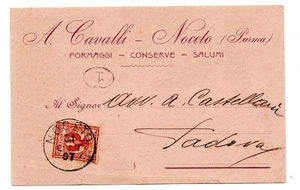 A. Cavalli - Noceto (Parma)
FORMAGGI - CONSERVE - SALUMI
Al Signor Avv. A. Castellani
Padova
NOCETO
07